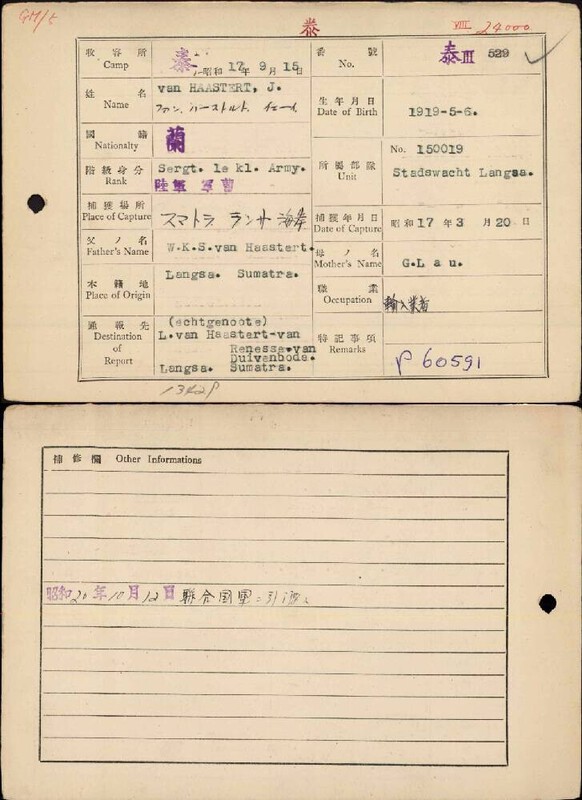 泰
VIII 24000
收容所
Camp
泰 昭和 17年 9月 15日
番號
No.
泰III 529
姓名
Name
van HAASTERT, J.
生年月日
Date of Birth
1919-5-6.
國籍
Nationality
蘭
階級身分
Rank
Sergt. le kl. Army.
陸軍 軍曹
所屬部隊
Unit
No. 150019
Stadswacht Langsa.
捕獲場所
Place of Capture
スマトラ ランサ 海岸
捕獲年月日
Date of Capture
昭和 17年 3月 20日
父ノ名
Father's Name
W.K.S.van Haastert.
母ノ名
Mother's Name
G.L a u.
本籍地
Place of Origin
Langsa. Sumatra.
職業
Occupation
輸入業者
通報先
Destination
of
Report
(echtgenoote)
L.van Haastert-van
Renesse van
Duivenbode.
Langsa. Sumatra.
特記事項
Remarks
P 60591
補修欄 Other Informations
昭和20年10月12日 聯合国軍ニ引渡ス